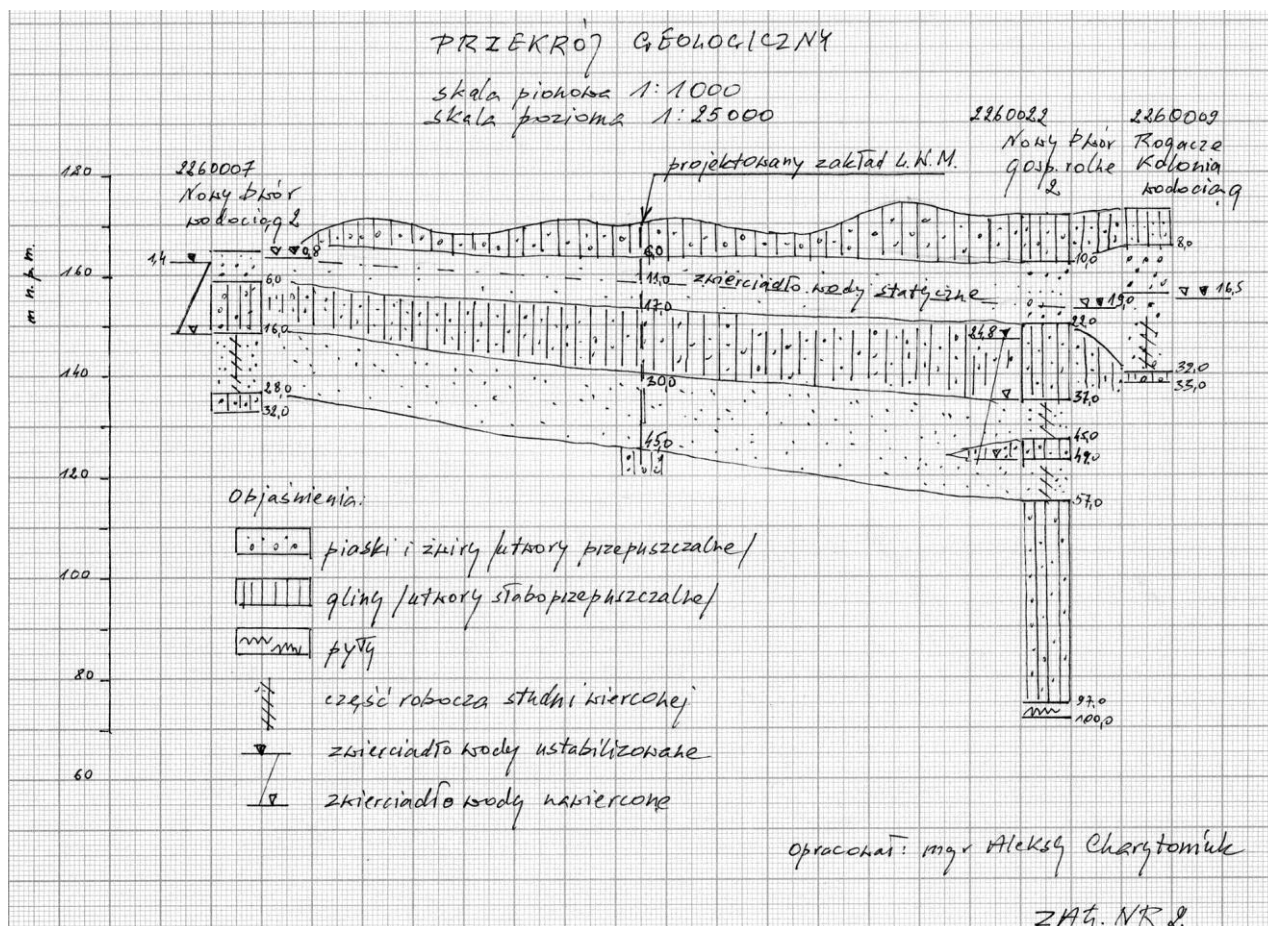 PRZEKRÓJ GEOLOGICZNY
skala pionowa 1:1000
skala pozioma 1:25000
2260007
Nowy Dwór
wodociąg 2
projektowany zakład U.W.M.
2260022
Nowy Dwór
gosp. rolne
2
2260009
Rogacze
Kolonia
wodociąg
m n.p.m.
180
160
140
120
100
80
60
1,4
0,8
6,0
16,0
28,0
32,0
6,0
11,0
17,0
30,0
45,0
zwierciadło wody statyczne
10,0
19,0
22,0
24,8
37,0
45,0
49,0
57,0
97,0
100,0
8,0
16,5
32,0
33,0
Objaśnienia:
piaski i żwiry /utwory przepuszczalne/
gliny /utwory słaboprzepuszczalne/
pyły
część robocza studni wierconej
zwierciadło wody ustabilizowane
zwierciadło wody nawiercone
opracował: mgr Aleksy Charytoniuk
ZAŁ. NR 2